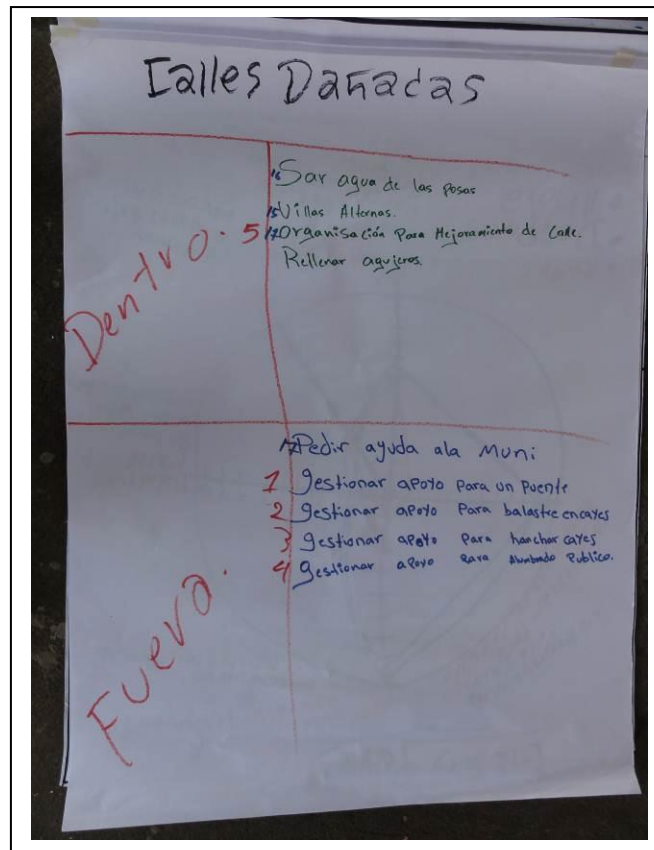 Calles Dañadas
Dentro.
16 Sar agua de las Posas
15 Villas Alternas.
5 17 Organisación Para Mejoramiento de Calle.
Rellenar agujeros.
Fuera.
17 Pedir ayuda ala Muni
1 gestionar apoyo para un Puente
2 gestionar apoyo Para balastre encayes
3 gestionar apoyo Para hanchar cayes
4 gestionar apoyo Para Alumbrado Publico.